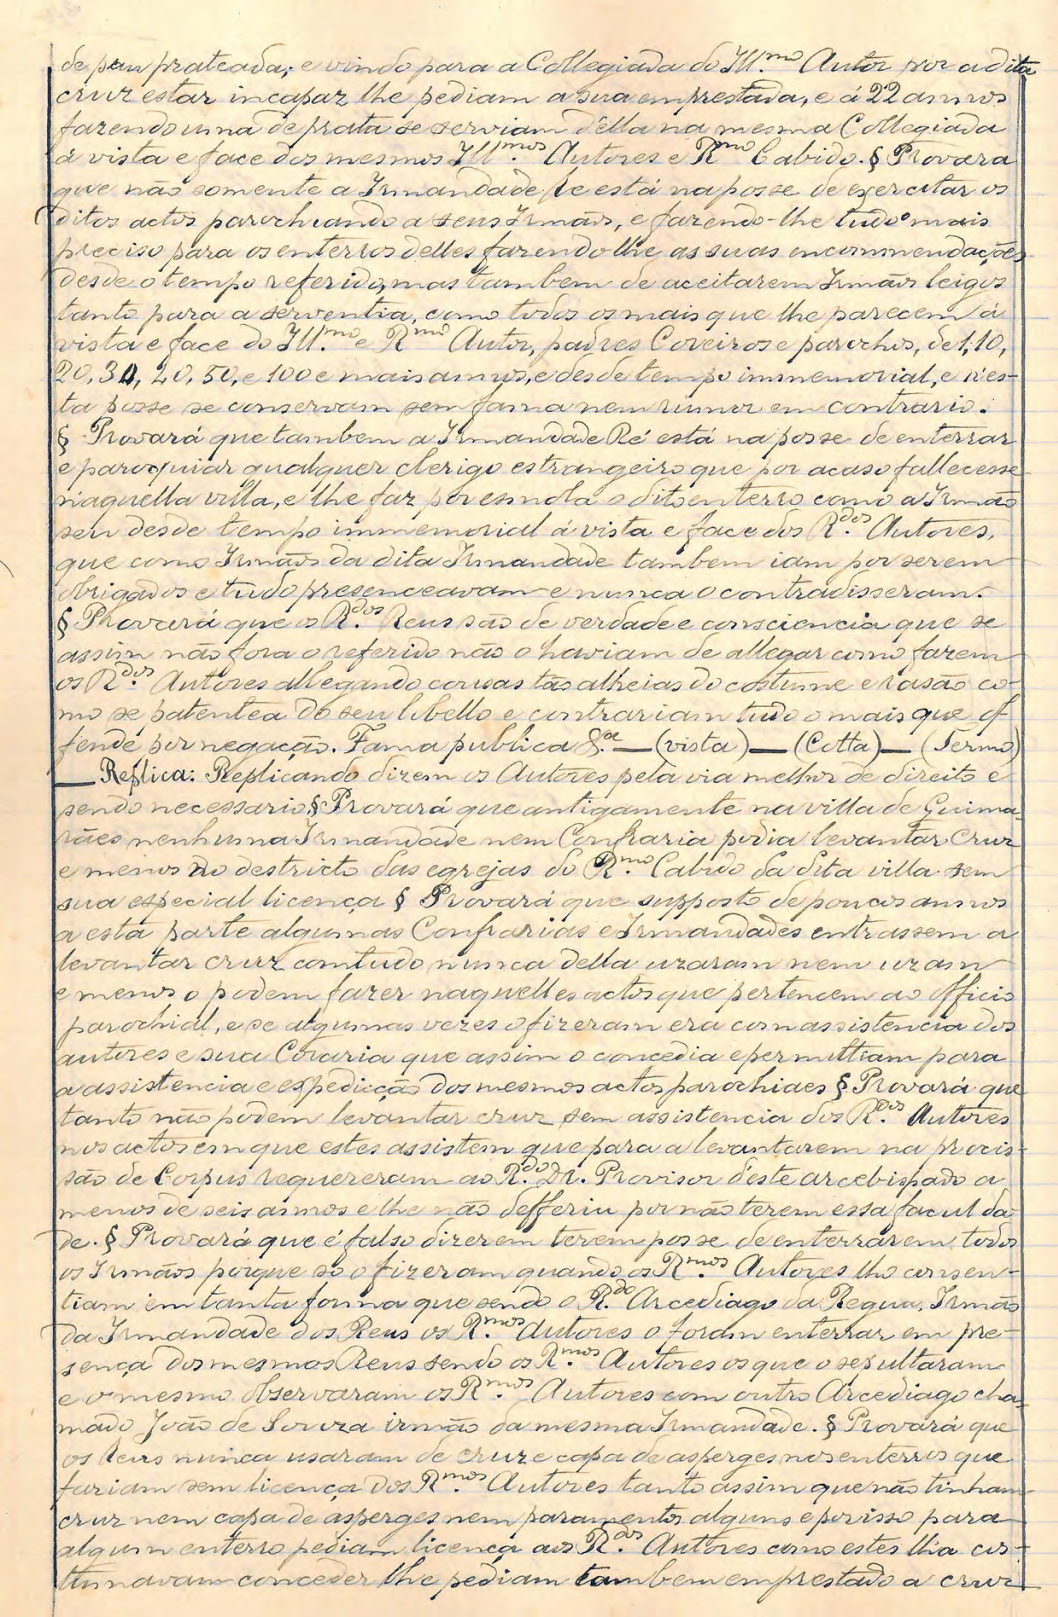 de pau prateada; e vindo para a Collegiada do Ill.mo Autor por a dita
cruz estar incapaz lhe pediam a sua emprestada, e á 22 annos
fazendo uma de prata se serviam d'ella na mesma Collegiada
á vista e face dos mesmos Ill.mos Autores e Rmo Cabido. § Provara
que não somente a Irmandade Re está na posse de exercitar os
ditos actos parochiando a seus Irmãos, e fazendo-lhe tudo o mais
preciso para os enterros delles fazendo lhe as suas encommendações
desde o tempo referido, mas tambem de aceitarem Irmãos leigos
tanto para a serventia, como todos os mais que lhe parecem á
vista e face do Ill.mo e Rmo Autor, padres Coreiros e parochos, de 1, 10,
20, 30, 40, 50, e 100 e mais annos, e desde tempo immemorial, e n'es-
ta posse se conservam sem fama nem rumor em contrario.
§ Provará que tambem a Irmandade Ré está na posse de enterrar
e paroquiar qualquer clerigo estrangeiro que por acaso fallecesse
n'aquella villa, e lhe faz por esmola o dito enterro como a Irmão
seu desde tempo immemorial á vista e face dos R.dos Autores,
que como Irmãos da dita Irmandade tambem iam por serem
obrigados e tudo presenceavam e nunca o contradisseram.
§ Provará que os R.dos Reus são de verdade e consciencia que se
assim não fora o referido não o haviam de allegar como fazem
os R.dos Autores allegando cousas tão alheias do costume e rasão co-
mo se patentea do seu libello e contrariam tudo o mais que of
fende por negação. Fama publica &.a — (vista) — (Cotta) — (Termo)
— Replica: Replicando dizem os Autores pela via melhor de direito e
sendo necessario § Provará que antigamente na villa de Guima
rães nenhuma Irmandade nem Confraria podia levantar Cruz
e menos no destricto das egrejas do R.mo Cabido da dita villa sem
sua especial licença § Provará que supposto de poucos annos
a esta parte algumas Confrarias e Irmandades entrassem a
levantar cruz comtudo nunca della uzaram nem uzam
e menos o podem fazer naquelles actos que pertencem ao officio
parochial, e se algumas vezes o fizeram era com assistencia dos
autores e sua Coraria que assim o concedia e permittiam para
a assistencia e expedicção dos mesmos actos parochiaes § Provará que
tanto não podem levantar cruz sem assistencia dos R.dos Autores
nos actos em que estes assistem que para a levantarem na procis-
são de Corpus requereram ao R.do Dr. Provisor d'este arcebispado a
menos de seis annos e lhe não defferiu por não terem essa faculda
de. § Provará que é falso dizerem terem posse de enterrarem todos
os Irmãos porque só o fizeram quando os Rmos. Autores lho consen-
tiam em tanta forma que sendo o R.do Arcediago da Regua, Irmão
da Irmandade dos Reus os R.mos Autores o foram enterrar em pre-
sença dos mesmos Reus sendo os R.mos Autores os que o sepultaram
e o mesmo observaram os R.mos Autores com outro Arcediago cha-
mado João de Souza irmão da mesma Irmandade. § Provará que
os Reus nunca usaram de cruz e capa de asperges nos enterros que
faziam sem licença dos R.mos Autores tanto assim que não tinham
cruz nem capa de asperges nem paramentos alguns e por isso para
algum enterro pediam licença aos R.dos Autores como estes lha cos-
tumavam conceder lhe pediam tambem emprestado a cruz